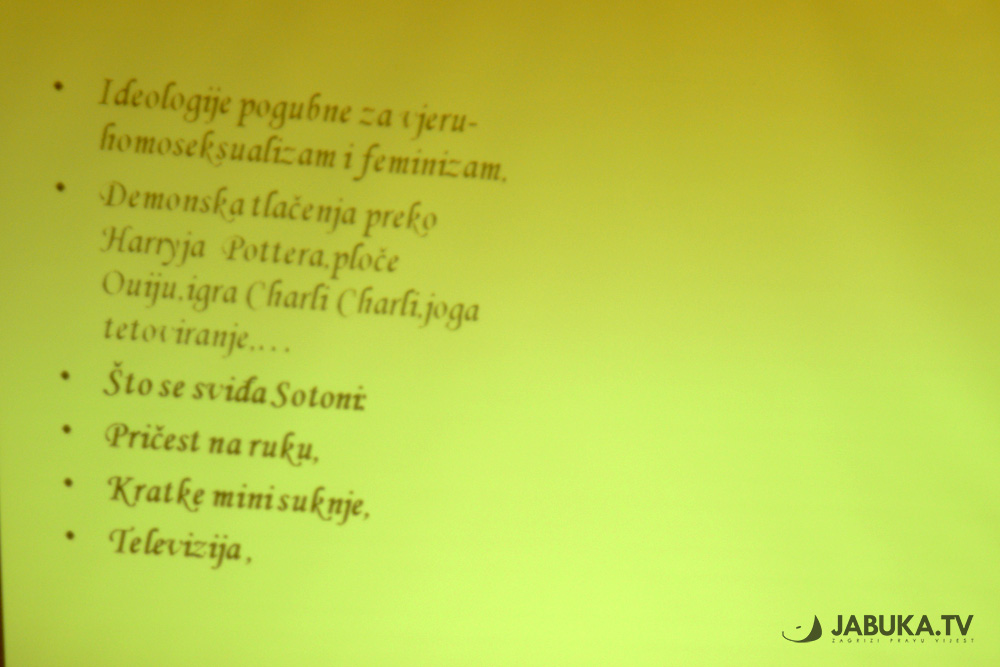 • Ideologije pogubne za vjeru-
homoseksualizam i feminizam.
• Demonska tlačenja preko
Harryja Pottera,ploče
Ouiju,igra Charli Charli,joga
tetoviranje,...
• Što se sviđa Sotoni:
• Pričest na ruku,
• Kratke mini suknje,
• Televizija,
JABUKA.TV
ZAGRIZI PRAVU VIJEST